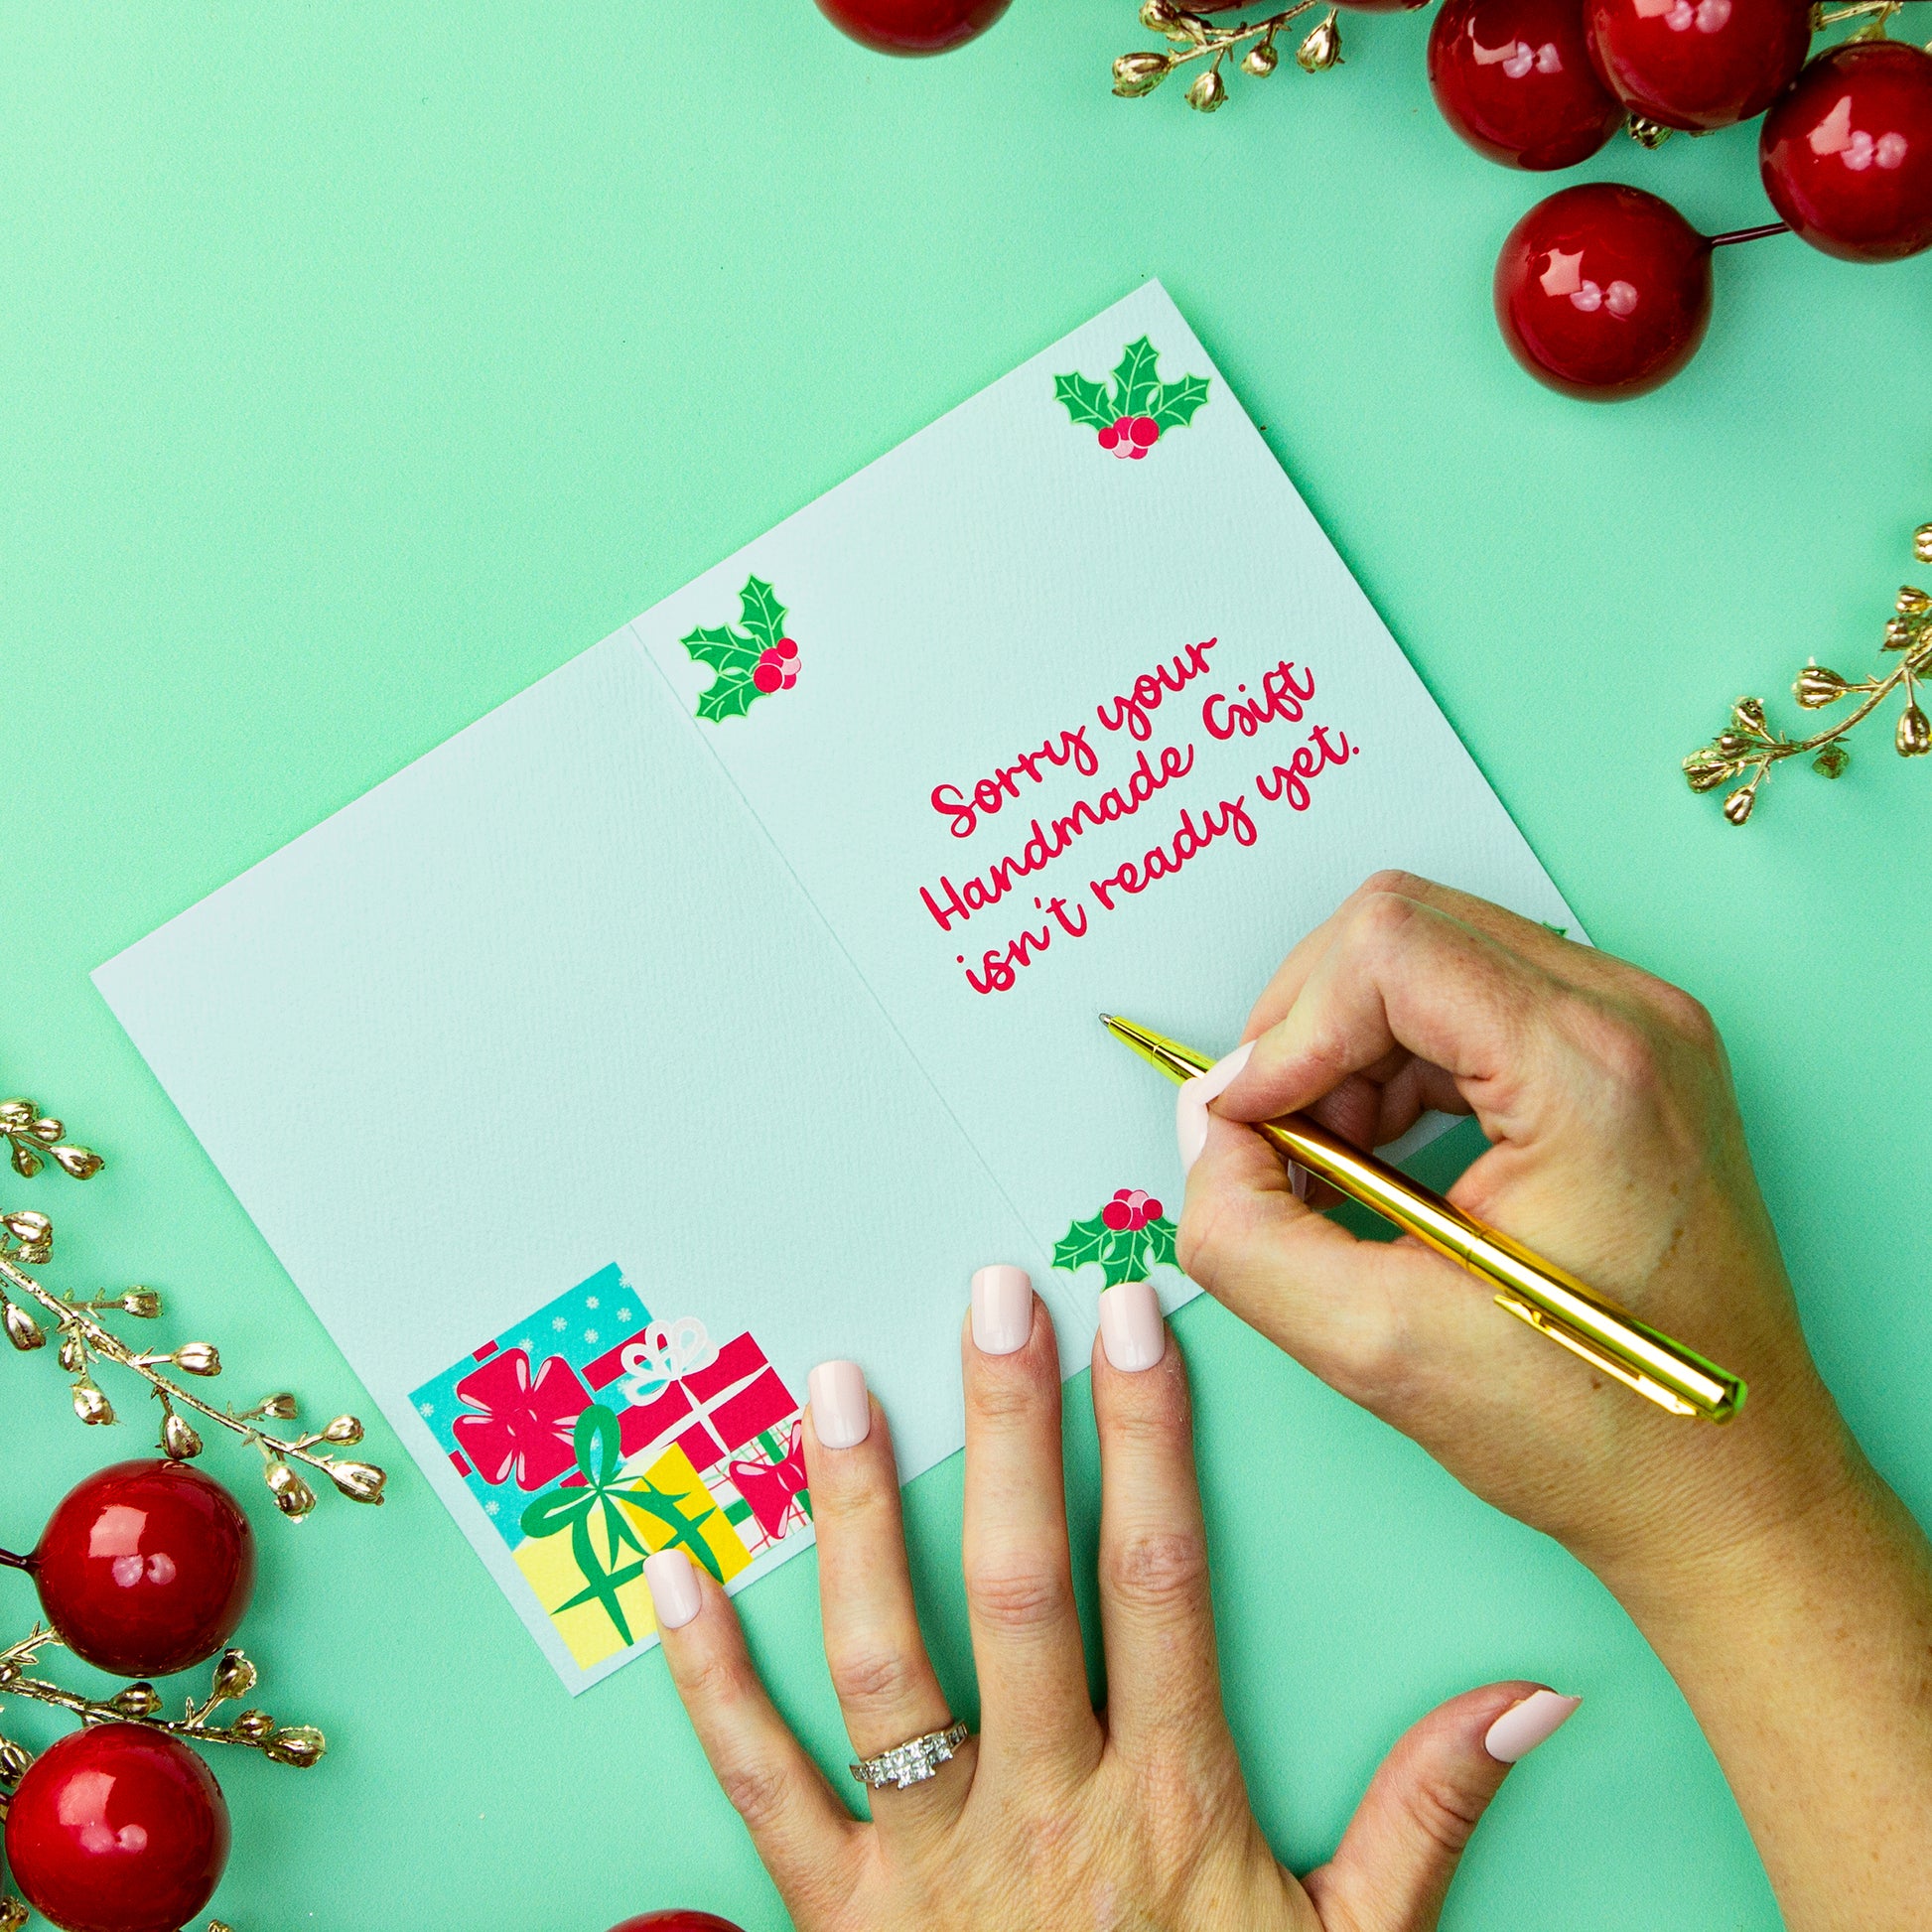 Sorry your
Handmade Gift
isn't ready yet.